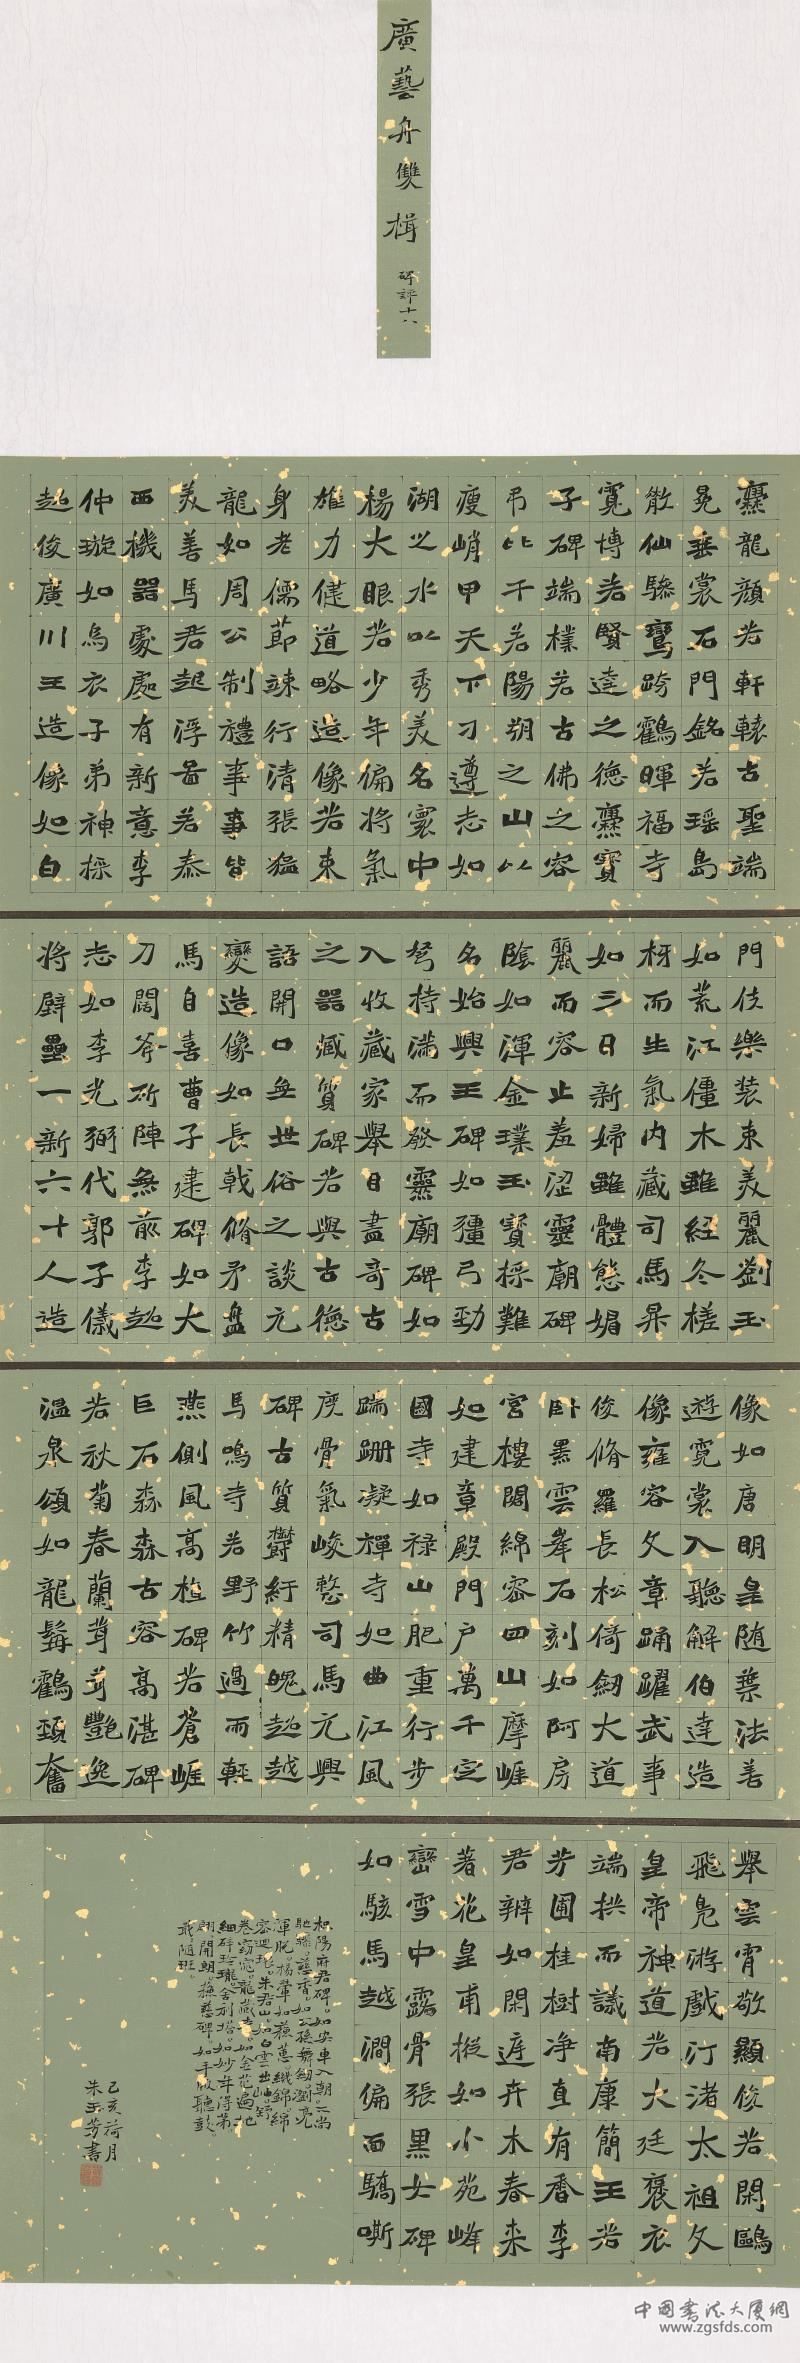 廣藝舟雙楫
碑評十八
爨龍顏若軒轅古聖端
冕垂裳石門銘若瑤島
散仙驂鸞跨鶴暉福寺
寬博若賢達之德爨寶
子碑端樸若古佛之容
弔比干若陽朔之山以
瘦峭甲天下刁遵志如
湖之水以秀美名寰中
楊大眼若少年偏將氣
雄力健道略造像若束
身老儒節竦行清張猛
龍如周公制禮事事皆
美善馬君起浮圖若泰
西機器處處有新意李
仲璇如烏衣子弟神採
超俊廣川王造像如白
門伎樂裝束美麗劉玉
如荒江僵木雖經冬槎
枒而生氣內藏司馬昇
如三日新婦雖體態媚
麗而容止羞澀靈廟碑
陰如渾金璞玉寶採難
名始興王碑如彊弓勁
弩持滿而發靈廟碑如
入收藏家舉目盡奇古
之器臧質碑若與古德
語開口無世俗之談元
燮造像如長戟脩矛盤
馬自喜曹子建碑如大
刀闊斧斫陣無前李超
志如李光弼代郭子儀
將壁壘一新六十人造
像如唐明皇随葉法善
遊霓裳入聽解伯達造
像雍容文章踊躍武事
俊脩羅長松倚劍大道
臥羆雲峯石刻如阿房
宮樓閣綿密四山摩崖
如建章殿門戶萬千定
國寺如禄山肥重行步
蹣跚凝禪寺如曲江風
度骨氣峻整司馬元興
碑古質鬱紆精魄超越
馬鳴寺若野竹過雨輕
燕側風高植碑若蒼崖
巨石森森古容高湛碑
若秋菊春蘭茸茸豔逸
溫泉頌如龍髯鶴頸奮
舉雲霄敬顯俊若閑鷗
飛鳧游戲汀渚太祖文
皇帝神道若大廷褒衣
端拱而議南康簡王若
芳圃桂樹淨直有香李
君辨如閑庭卉木春来
著花皇甫摐如小苑峰
巒雪中露骨張黑女碑
如駭馬越澗偏面驕嘶
枳陽府君碑。如安車入朝。不尚
馳騁。慈香。如公孫舞劍。劉亮
渾脫。楊翬如蘇蕙織錦。綿
密迴環。朱君山。如白雲出岫舒
卷窈窕。龍藏寺。如金花遍地
細碎玲瓏。舍利塔。如妙年得第
翩開朝。蘇慈碑。如手版聽鼓。
戢随班。
己亥荷月
朱玉芳書
中国书法大厦網
www.zgsfds.com